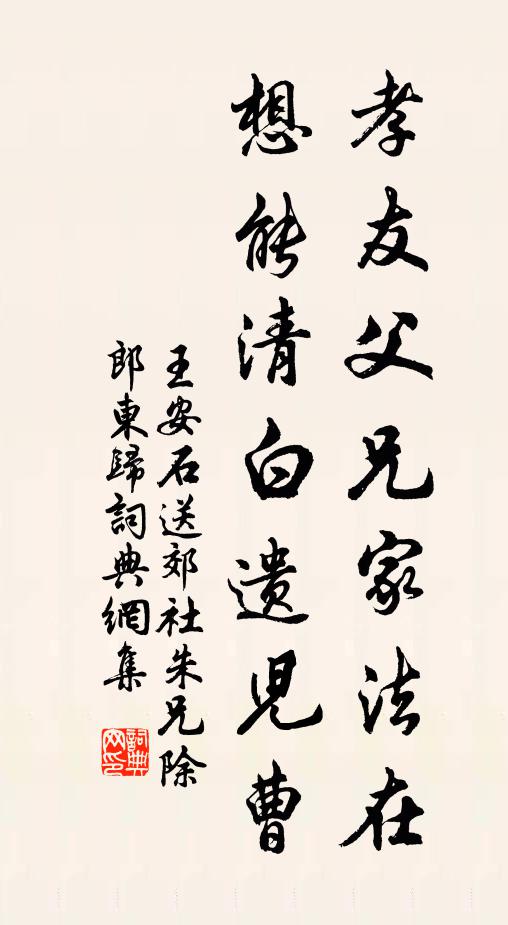 孝友父兄家法在
想能清白遗児曹
王安石送郊社朱兄除
郎東歸詞典網集
詞典
网印